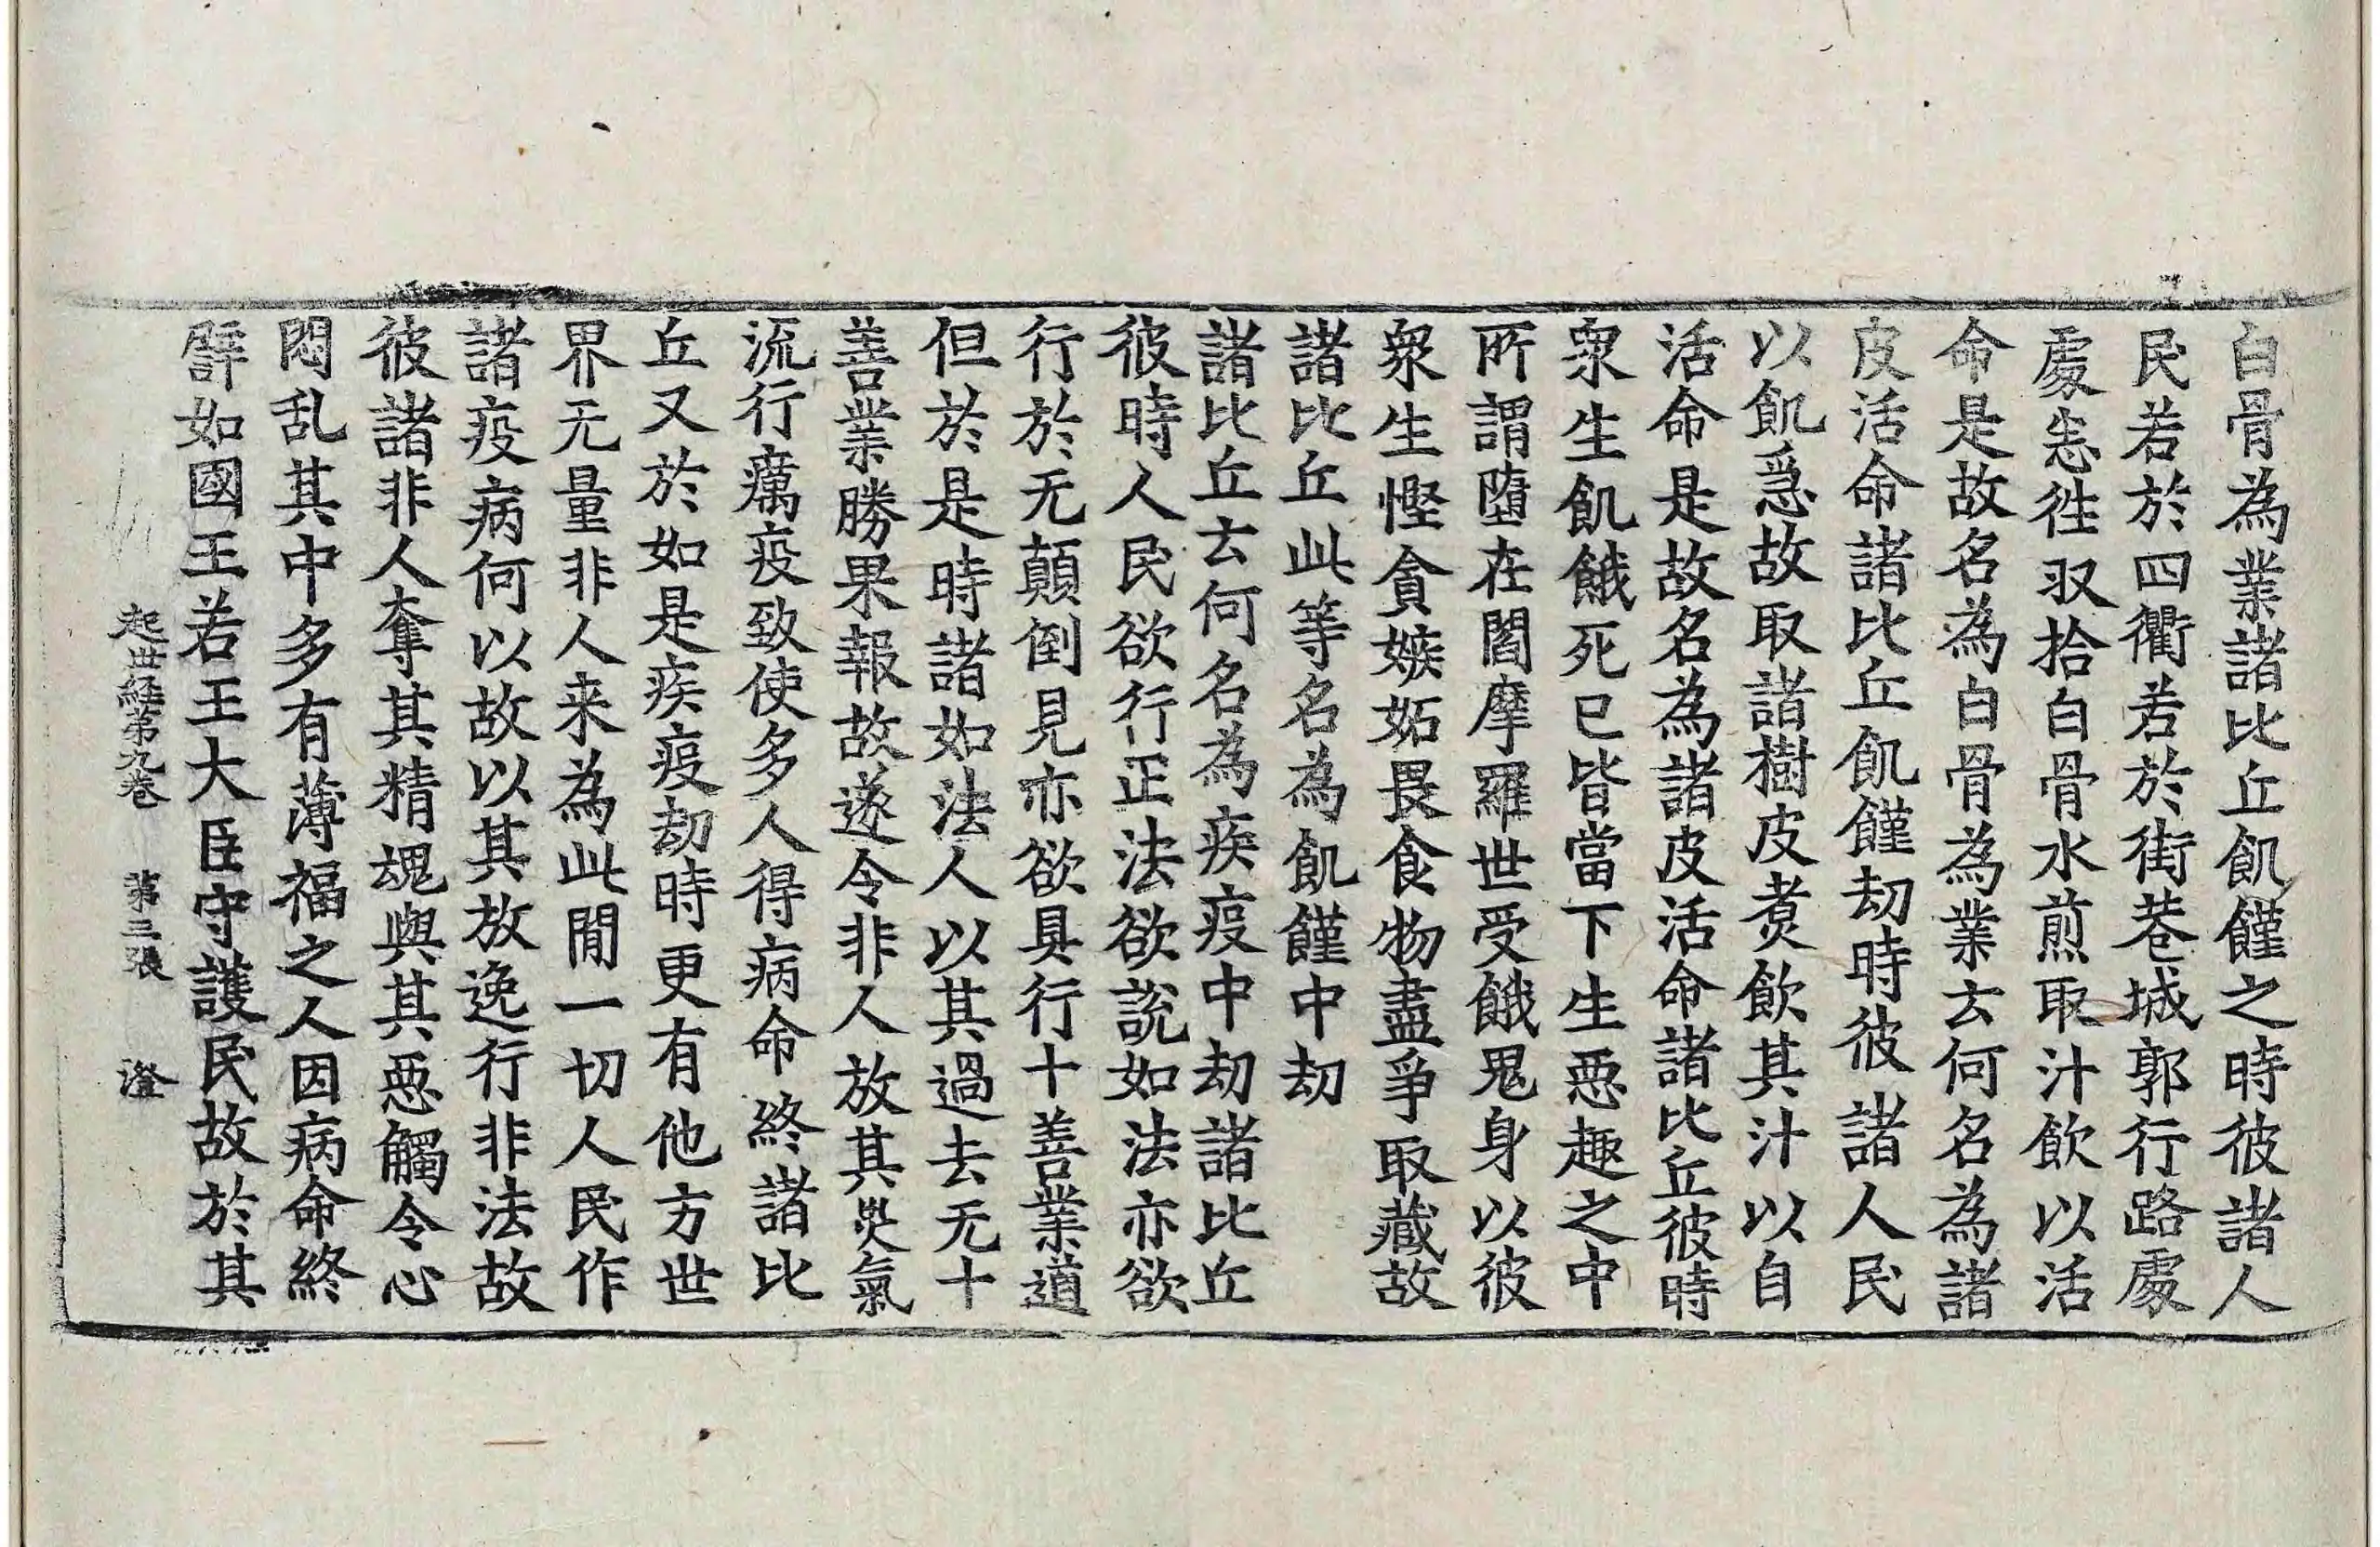 白骨為業諸比丘飢饉之時彼諸人
民若於四衢若於街巷城郭行路處
處悉徃収拾白骨水煎取汁飲以活
命是故名為白骨為業云何名為諸
皮活命諸比丘飢饉劫時彼諸人民
以飢急故取諸樹皮煑飲其汁以自
活命是故名為諸皮活命諸比丘彼時
衆生飢餓死已皆當下生惡趣之中
所謂墮在閻摩羅世受餓鬼身以彼
衆生慳貪嫉妬畏食物盡爭取藏故
諸比丘此等名為飢饉中劫
諸比丘云何名為疾疫中劫諸比丘
彼時人民欲行正法欲說如法亦欲
行於无顛倒見亦欲具行十善業道
但於是時諸如法人以其過去无十
善業勝果報故遂令非人放其災氣
流行癘疫致使多人得病命終諸比
丘又於如是疾疫劫時更有他方世
界无量非人来為此間一切人民作
諸疫病何以故以其放逸行非法故
彼諸非人奪其精魂與其惡觸令心
悶乱其中多有薄福之人因病命終
譬如國王若王大臣守護民故於其
起世経第九巻 第三張 澄